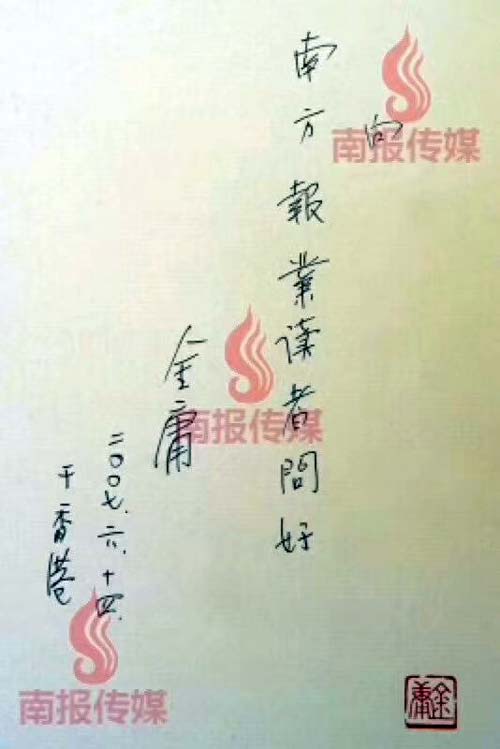 向
南方報業读者問好
金庸
二〇〇七.六.十四.
于香港
南报传媒
南报传媒
南报传媒
金庸